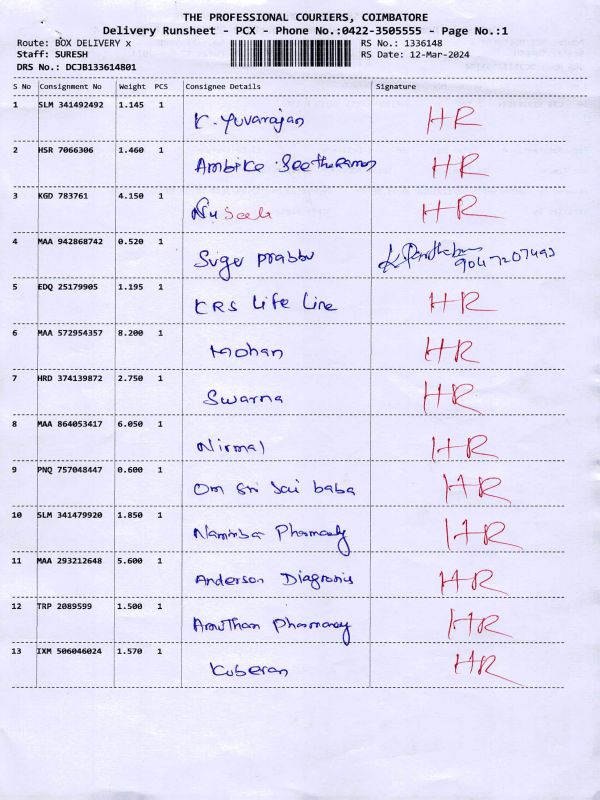 THE PROFESSIONAL COURIERS, COIMBATORE
Delivery Runsheet - PCX - Phone No.:0422-3505555 - Page No.:1
Route: BOX DELIVERY x RS No.: 1336148
Staff: SURESH RS Date: 12-Mar-2024
DRS No.: DCJB133614801
S No Consignment No Weight PCS Consignee Details Signature
1 SLM 341492492 1.145 1
K. Yuvarajan HR
2 HSR 7066306 1.460 1
Ambika Seetharaman HR
3 KGD 783761 4.150 1
HR
4 MAA 942868742 0.520 1
Suger prabbu 9047207493
5 EDQ 25179905 1.195 1
KRS Life Line HR
6 MAA 572954357 8.200 1
Mohan HR
7 HRD 374139872 2.750 1
Swarna HR
8 MAA 864053417 6.050 1
Nirmal HR
9 PNQ 757048447 0.600 1
Om Sri Sai baba HR
10 SLM 341479920 1.850 1
Pharmacy HR
11 MAA 293212648 5.600 1
Anderson Diagronis HR
12 TRP 2089599 1.500 1
Pharmacy HR
13 IXM 506046024 1.570 1
Kuberan HR